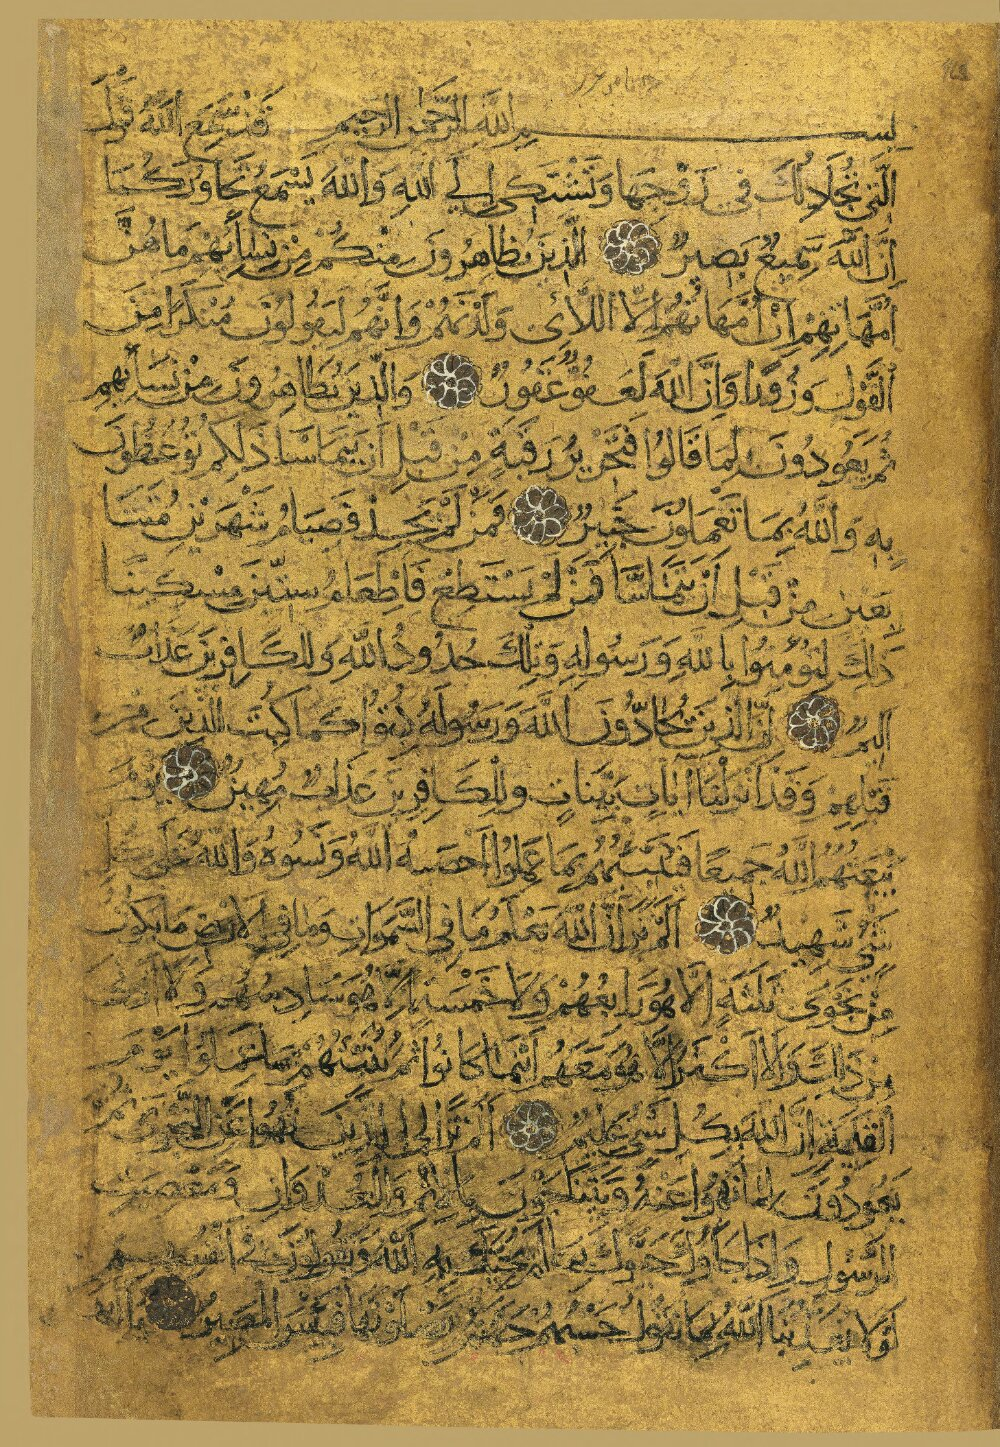 بسم الله الرحمن الرحيم قد سمع الله قول
التي تجادلك في زوجها وتشتكي إلي الله والله يسمع تحاوركما
ان الله سميع بصير الذين يظاهرون منكم من نسائهم ما هن
أمهاتهم ان أمهاتهم الا اللائي ولدنهم وانهم ليقولون منكرا من
القول وزورا وان الله لعفو غفور والذين يظاهرون من نسائهم
ثم يعودون لما قالوا فتحرير رقبة من قبل ان يتماسا ذلكم توعظون
به والله بما تعملون خبير فمن لم يجد فصيام شهرين متتا
بعين من قبل ان يتماسا فمن لم يستطع فاطعام ستين مسكينا
ذلك لتؤمنوا بالله ورسوله وتلك حدود الله وللكافرين عذاب
اليم ان الذين يحادون الله ورسوله كبتوا كما كبت الذين من
قبلهم وقد انزلنا آيات بينات وللكافرين عذاب مهين يوم
يبعثهم الله جميعا فينبئهم بما عملوا احصيه الله ونسوه والله على كل
شئ شهيد الم تر ان الله يعلم ما في السموات وما في الارض ما يكون
من نجوى ثلثة الا هو رابعهم ولا خمسة الا هو سادسهم ولا ادنى
من ذلك ولا اكثر الا هو معهم اينما كانوا ثم ينبئهم بما عملوا يوم
القيمة ان الله بكل شئ عليم الم تر الى الذين نهوا عن النجوى ثم
يعودون لما نهوا عنه ويتناجون بالاثم والعدوان ومعصيت
الرسول واذا جاؤك حيوك بما لم يحيك به الله ويقولون في انفسهم
لولا يعذبنا الله بما نقول حسبهم جهنم يصلونها فبئس المصير يا ايها